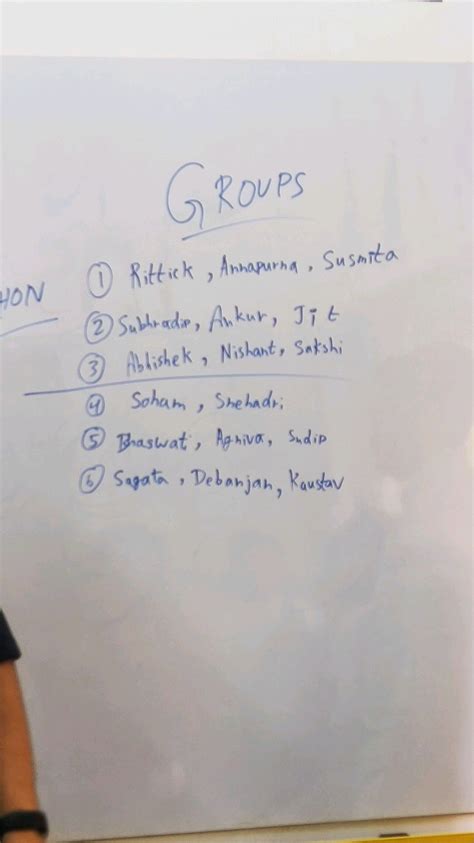 GROUPS
HON
① Rittick, Annapurna, Susmita
② Subhradip, Ankur, Jit
③ Abhishek, Nishant, Sakshi
④ Soham, Snehadri
⑤ Bhaswat, Agniva, Sudip
⑥ Sagata, Debanjan, Kaustav